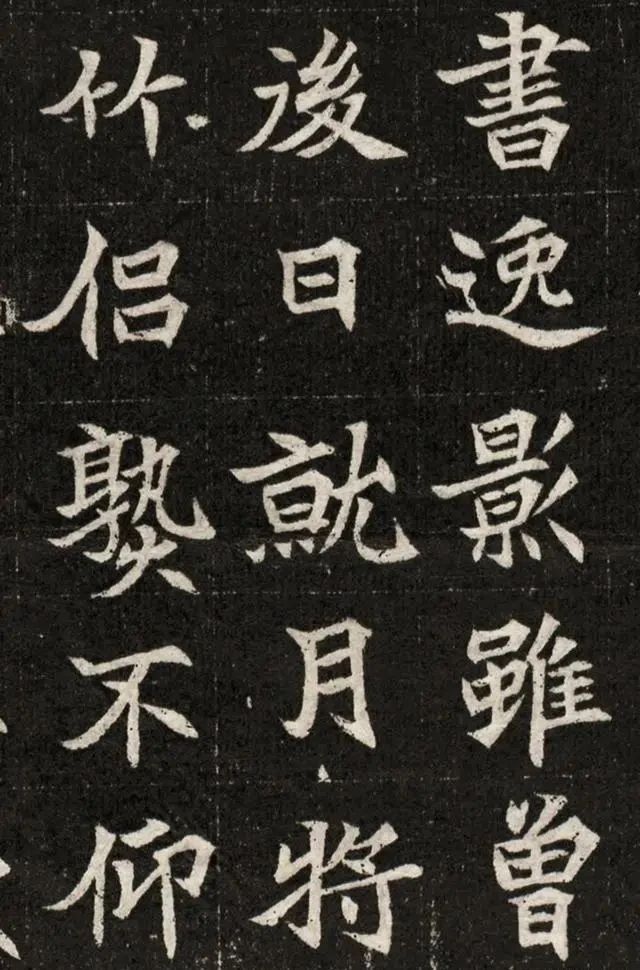 書逸影雖曾
後日就月將
竹侶不仰